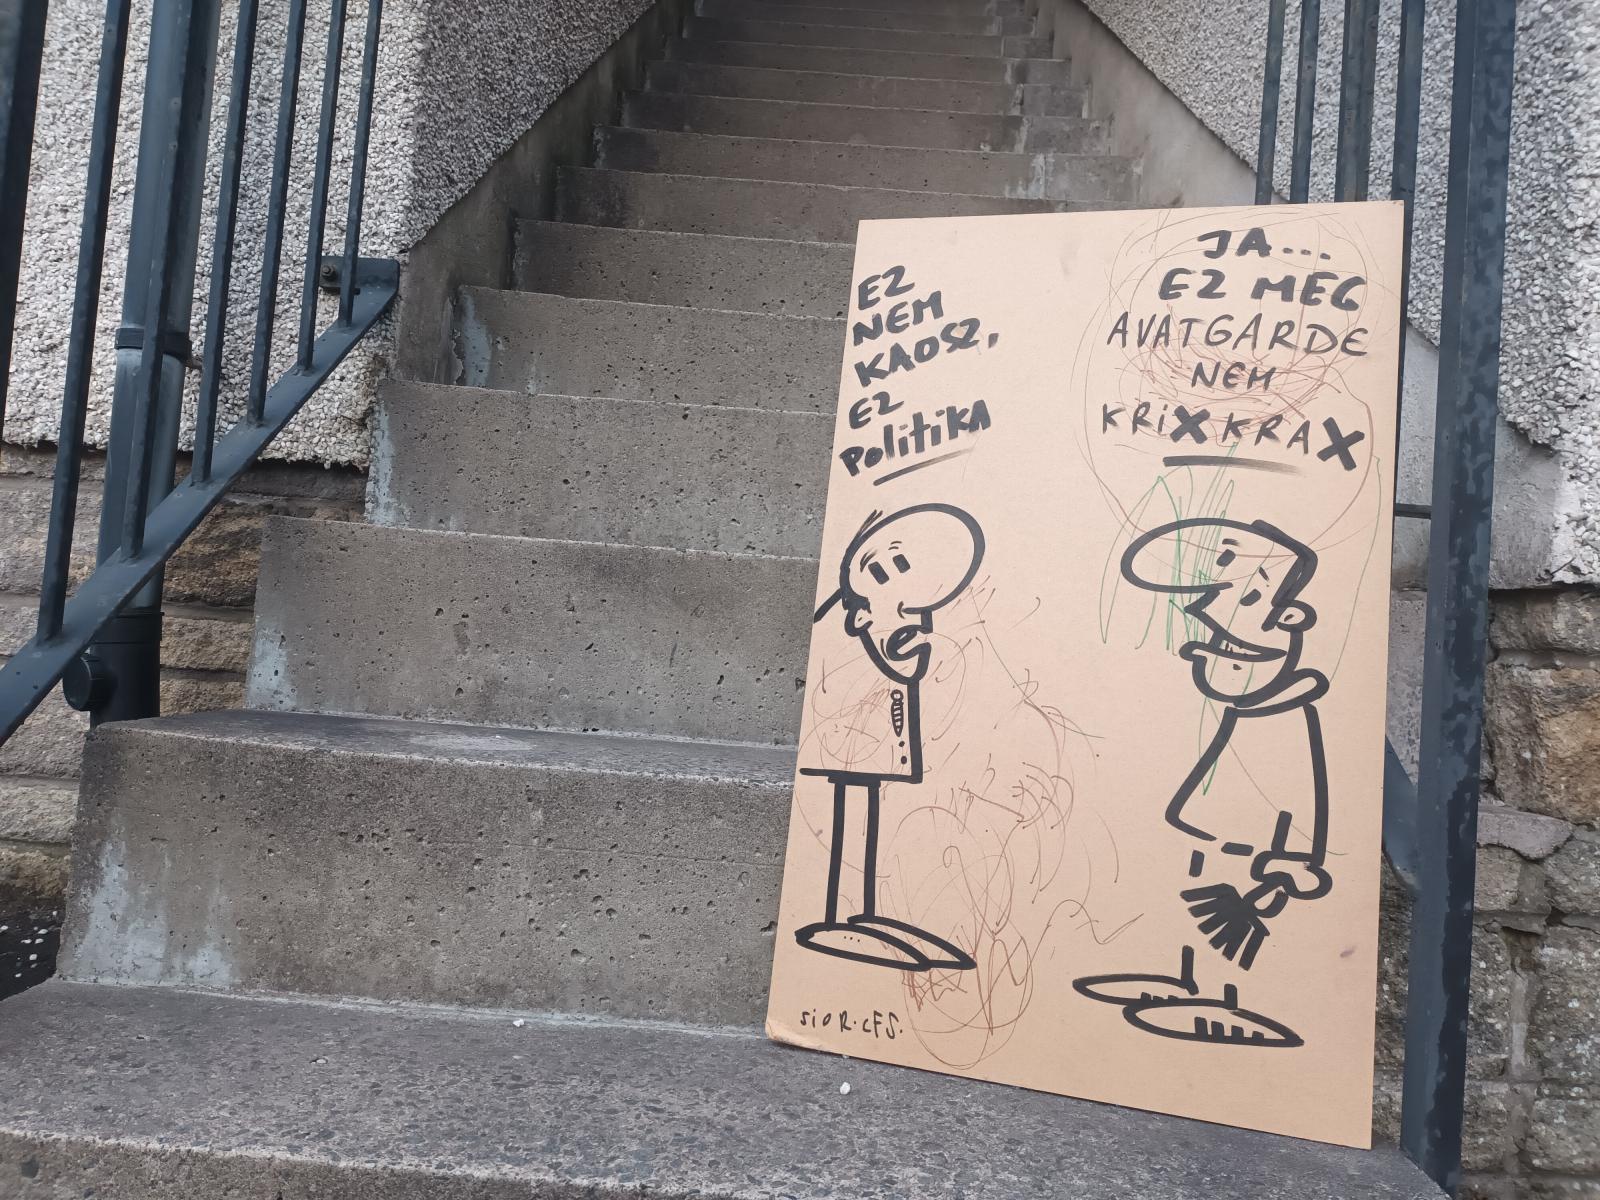 EZ
NEM
KAOSZ,
EZ
POLiTiKA
JA...
EZ MEG
AVATGARDE
NEM
KRiX KRAX
SiOR.CFS.